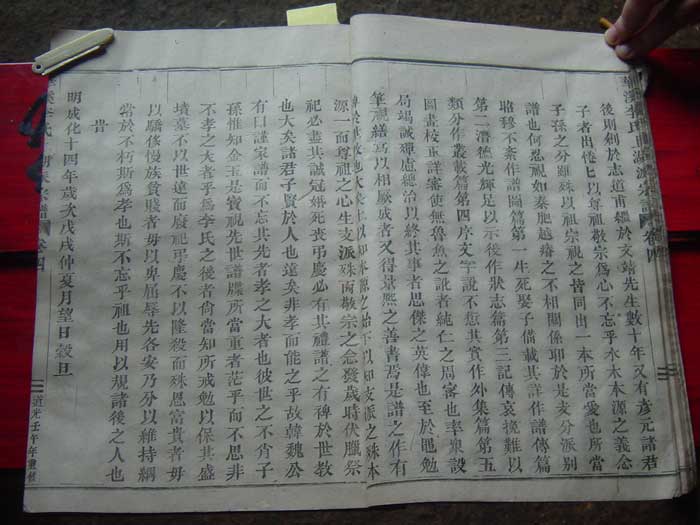 後則創於志道甫繼於文靖先生數十年又有彥元諸君
子者出惓惓以尊祖敬宗爲心不忘乎水木本源之義念
子孫之分雖殊以祖宗視之皆同出一本所當愛也所當
譜也何忍視如秦肥越瘠之不相關耶於是支分派別
昭穆不紊作譜圖篇第一生死娶子備載其詳作譜傳篇
第二潛德光輝足以示後作狀志篇第三記傳哀挽難以
類分作叢載篇第四序文字說不愆其實作外集篇第五
圖畫校正詳審使無魯魚之訛者純仁之周密也率衆設
局竭誠殫慮總治以終其事者思傑之英偉也至於黽勉
筆硯繕寫以相厥成者又得景熙之善書焉是譜之作有
源一而尊祖之心生支派殊而敬宗之念發歲時伏臘祭
祀必盡其誠冠婚死喪弔慶必有其禮譜之有裨於世教
也大矣諸君子賢於人也遠矣非孝而能之乎故韓魏公
有曰謹家譜而不忘其先者孝之大者也彼世之不肖子
孫惟知金玉是寶視先世譜牒所當重者茫乎而不思非
不孝之大者乎爲李氏之後者尚當知所戒勉以保其盛
墳墓不以世遠而廢祀弔慶不以隆殺而殊恩富貴者毋
以驕侈慢族貧賤者毋以卑屈辱先各安乃分以維持綱
常於不朽斯爲孝也斯不忘乎祖也用以規諸後之人也
昔
明成化十四年歲次戊戌仲夏月望日穀旦
卷四
道光壬午年重修